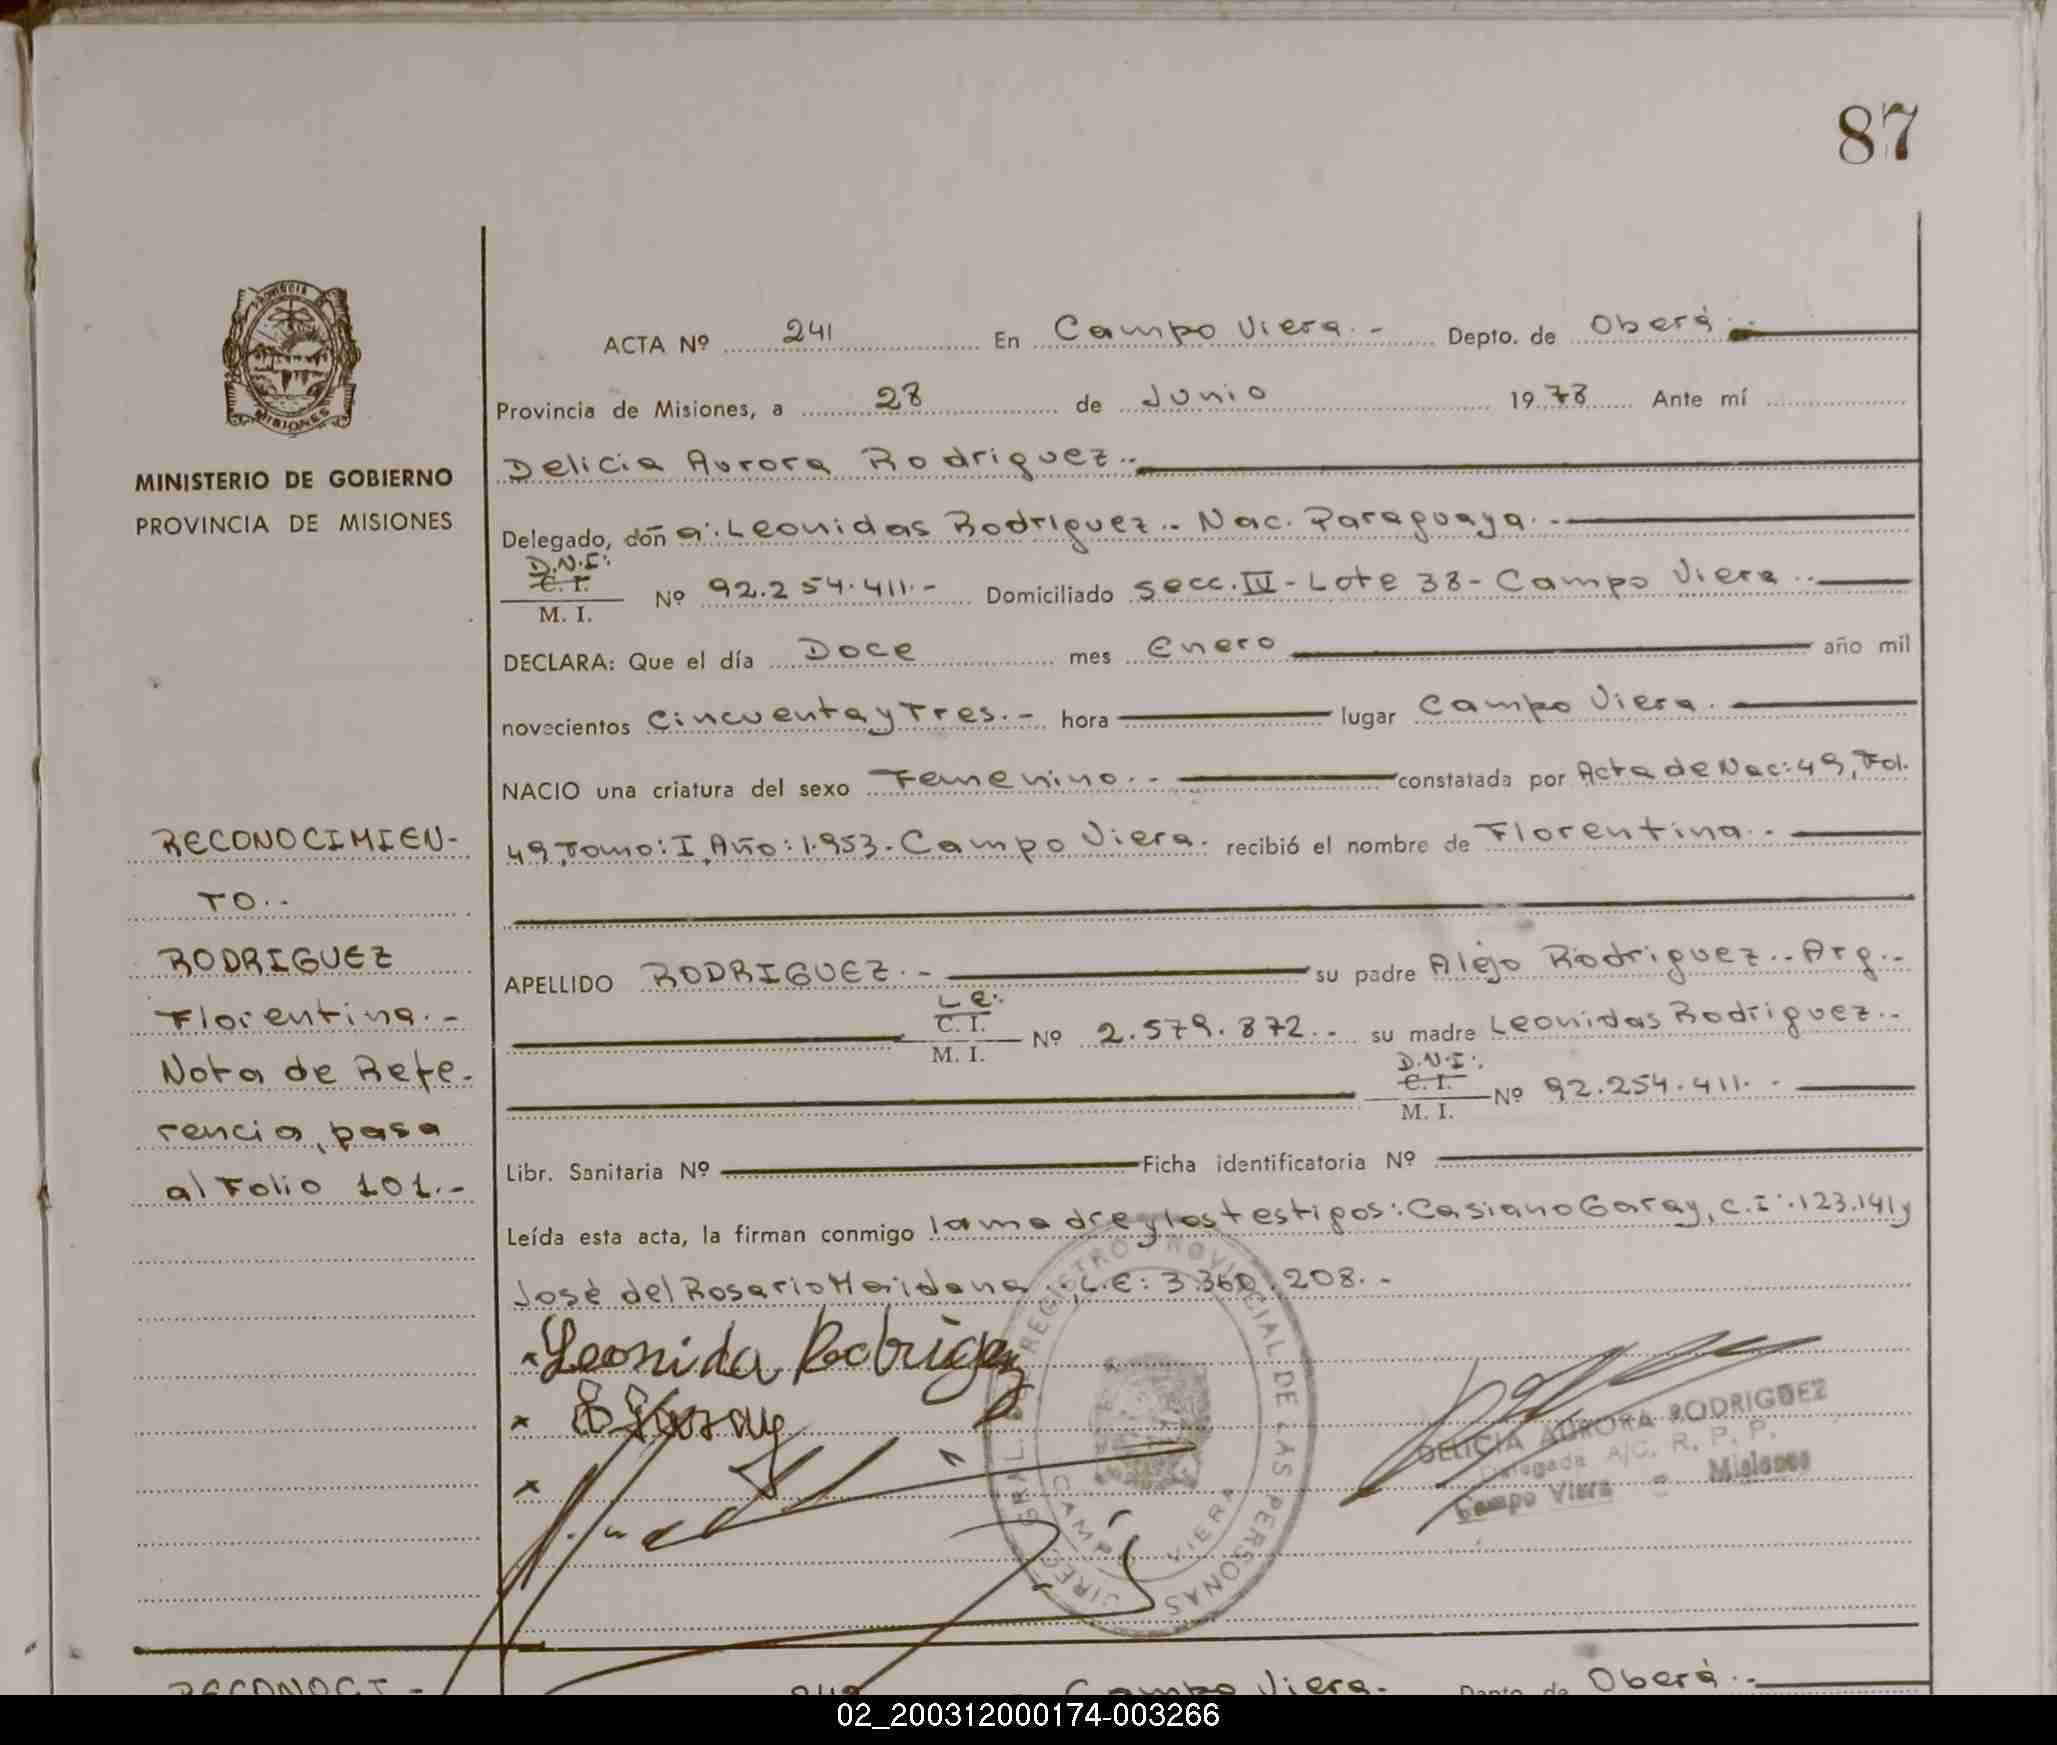 87
PROVINCIA DE MISIONES
MINISTERIO DE GOBIERNO
PROVINCIA DE MISIONES
RECONOCIMIEN-
TO.-
RODRIGUEZ
Florentina.-
Nota de Refe-
rencia, pasa
al Folio 101.-
ACTA Nº 241 En Campo Viera.- Depto. de Oberá.-
Provincia de Misiones, a 28 de Junio 1978 Ante mí
Delicia Aurora Rodriguez.-
Delegado, don a: Leonidas Rodriguez.- Nac. Paraguaya.-
D.N.I:
C. I.
M. I. Nº 92.254.411.- Domiciliado Secc. IV - Lote 38 - Campo Viera.-
DECLARA: Que el día Doce mes Enero año mil
novecientos Cincuenta y Tres.- hora lugar Campo Viera.
NACIO una criatura del sexo Femenino.- constatada por Acta de Nac: 49, Fol.
49, Tomo: I, Año: 1.953.- Campo Viera. recibió el nombre de Florentina.-
APELLIDO RODRIGUEZ.- su padre Alejo Rodriguez.- Arg.-
L.E:
C. I.
M. I. Nº 2.579.872.- su madre Leonidas Rodriguez.-
D.N.I:
C. I.
M. I. Nº 92.254.411.-
Libr. Sanitaria Nº Ficha identificatoria Nº
Leída esta acta, la firman conmigo la madre y los testigos: Casiano Garay, C.I: 123.141 y
José del Rosario Maidana, L.E: 3.360.208.-
Leonida Rodriguez
DELICIA AURORA RODRIGUEZ
Delegada A/C. R. P. P.
Campo Viera - Misiones
REGISTRO PROVINCIAL DE LAS PERSONAS
CAMPO VIERA
RECONOCI-
242 Campo Viera.- Depto. de Oberá.-
02_200312000174-003266